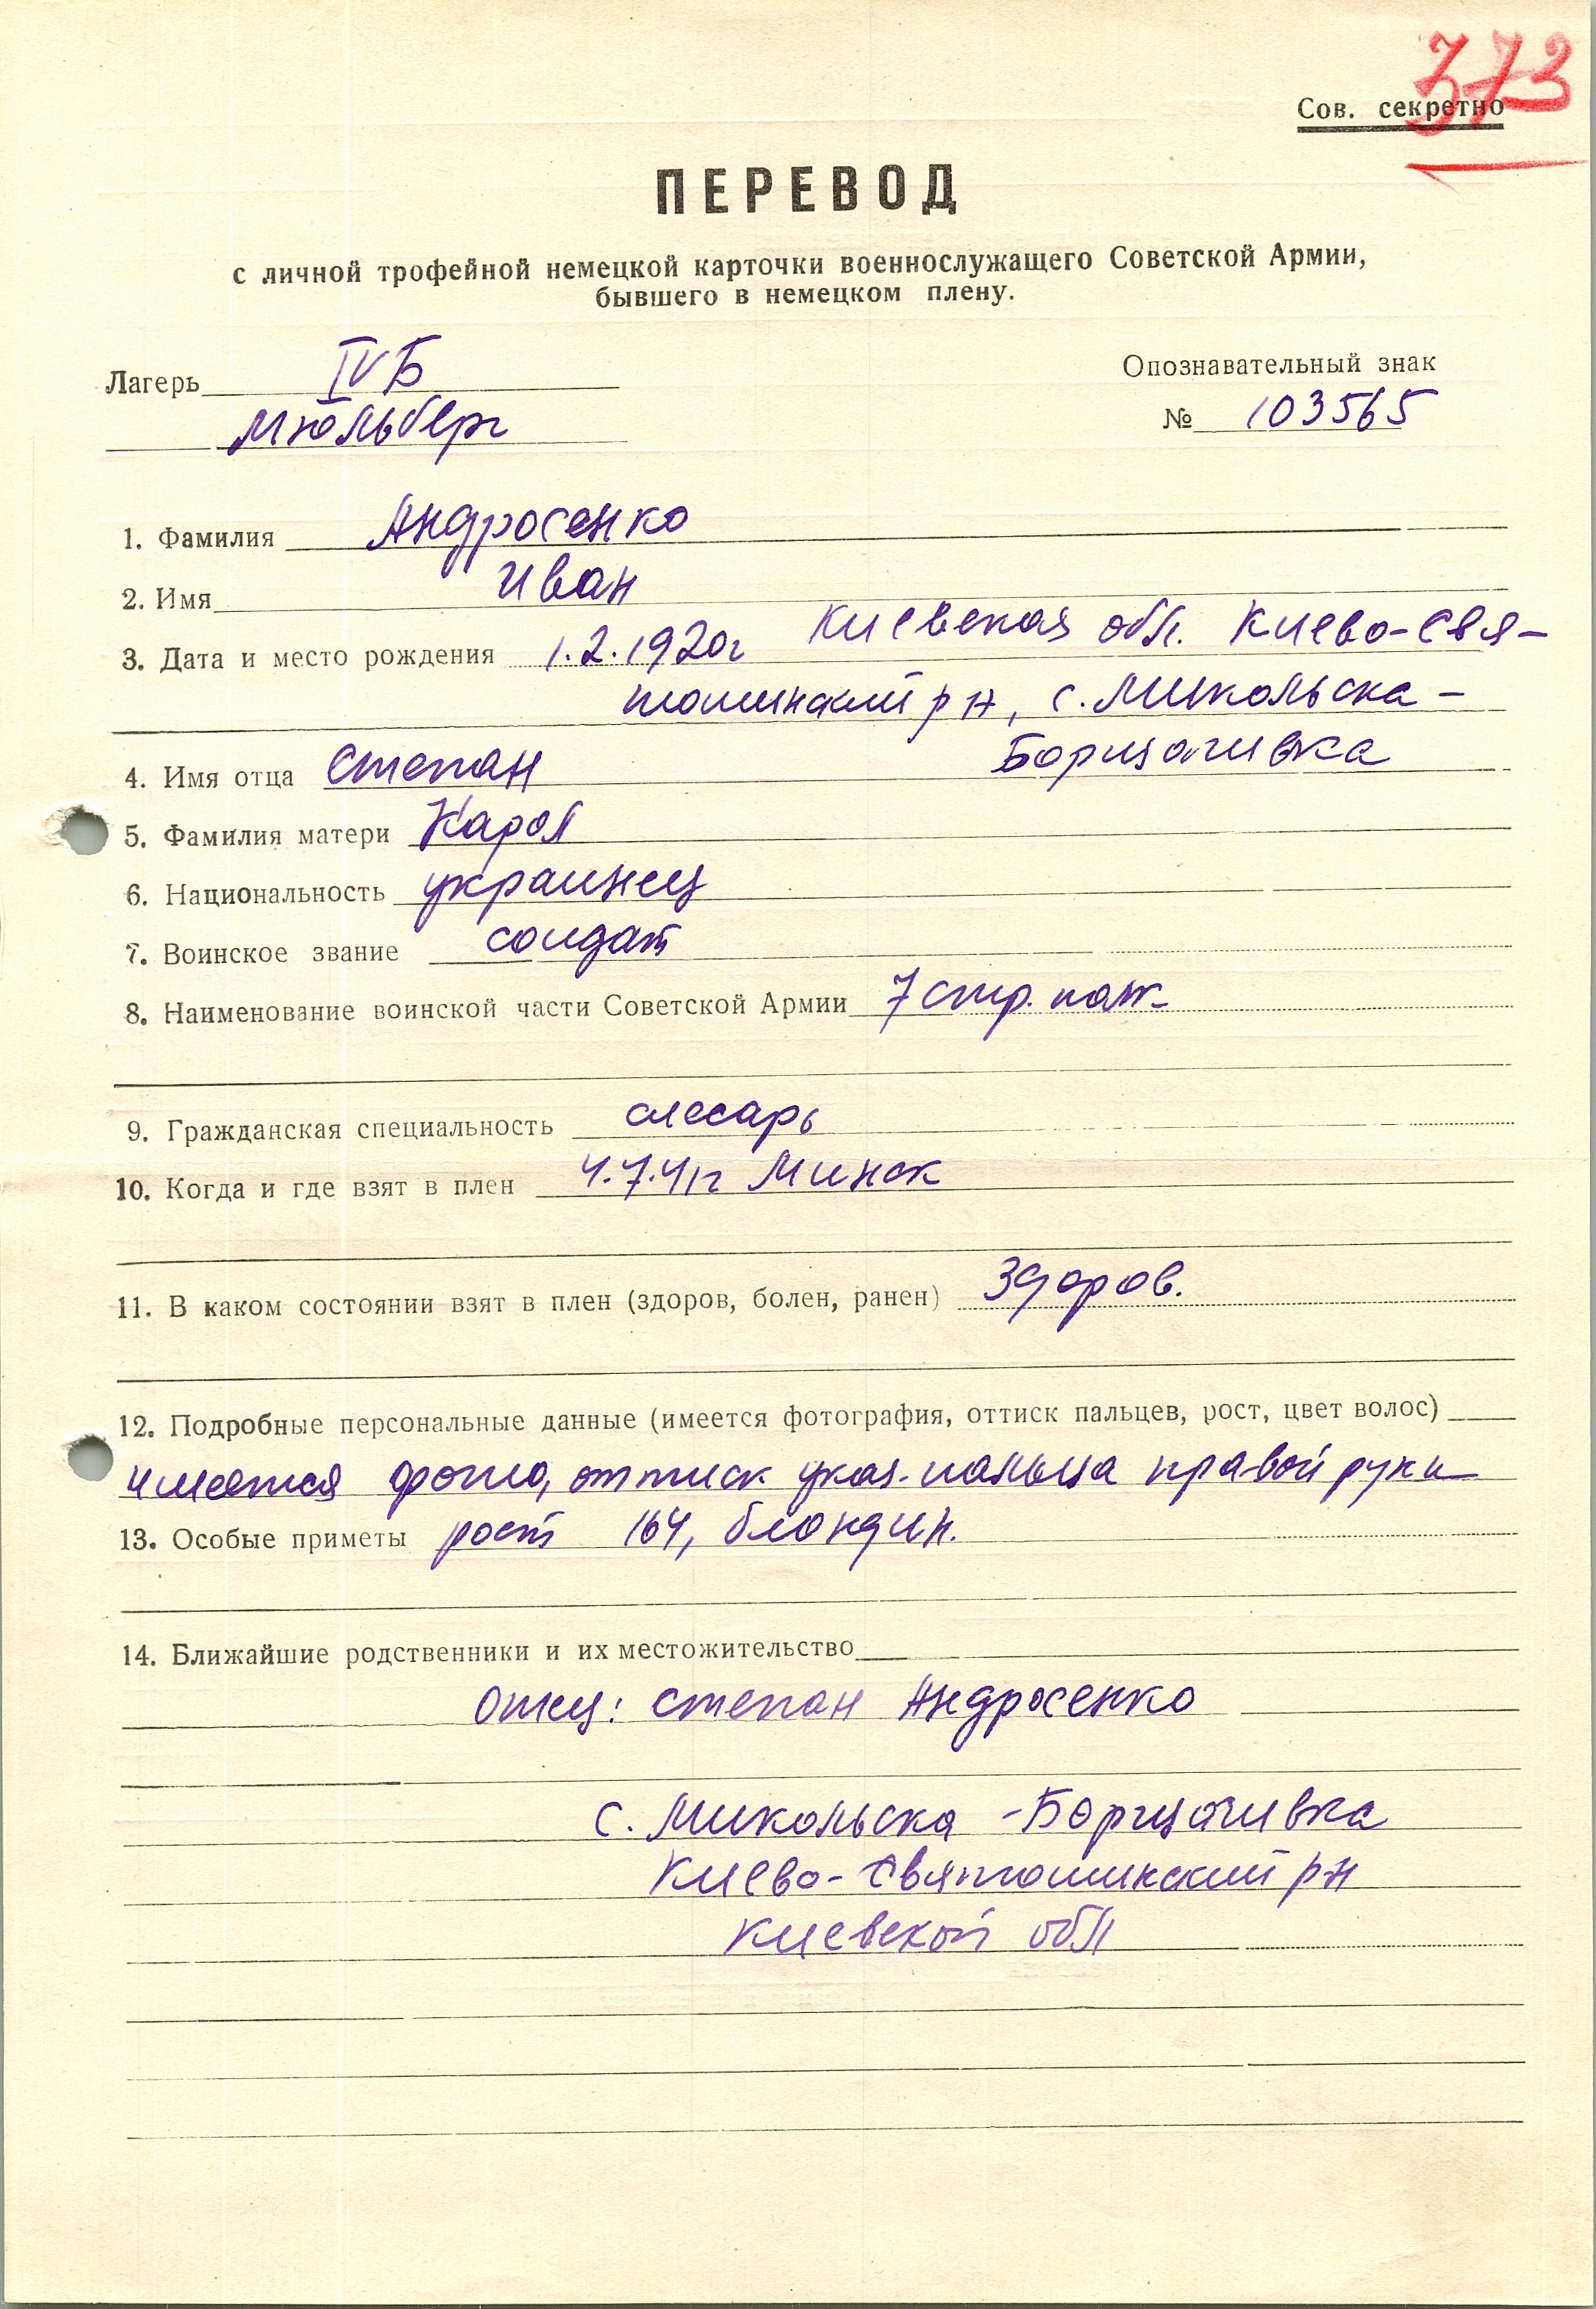 373
Сов. секретно
ПЕРЕВОД
с личной трофейной немецкой карточки военнослужащего Советской Армии,
бывшего в немецком плену.
Лагерь IVБ
Мюльберг
Опознавательный знак
№ 103565
1. Фамилия Андросенко
2. Имя Иван
3. Дата и место рождения 1.2.1920г Киевская обл. Киево-Свя-
тошинский р н, с. Микольска-
Борщагивка
4. Имя отца Степан
5. Фамилия матери Карол
6. Национальность украинец
7. Воинское звание солдат
8. Наименование воинской части Советской Армии 7 стр. полк
9. Гражданская специальность слесарь
10. Когда и где взят в плен 4.7.41г Минск
11. В каком состоянии взят в плен (здоров, болен, ранен) Здоров.
12. Подробные персональные данные (имеется фотография, оттиск пальцев, рост, цвет волос)
имеется фото, оттиск указ. пальца правой руки
13. Особые приметы рост 164, блондин.
14. Ближайшие родственники и их местожительство
Отец: Степан Андросенко
с. Микольска-Борщагивка
Киево-Святошинский р н
Киевской обл